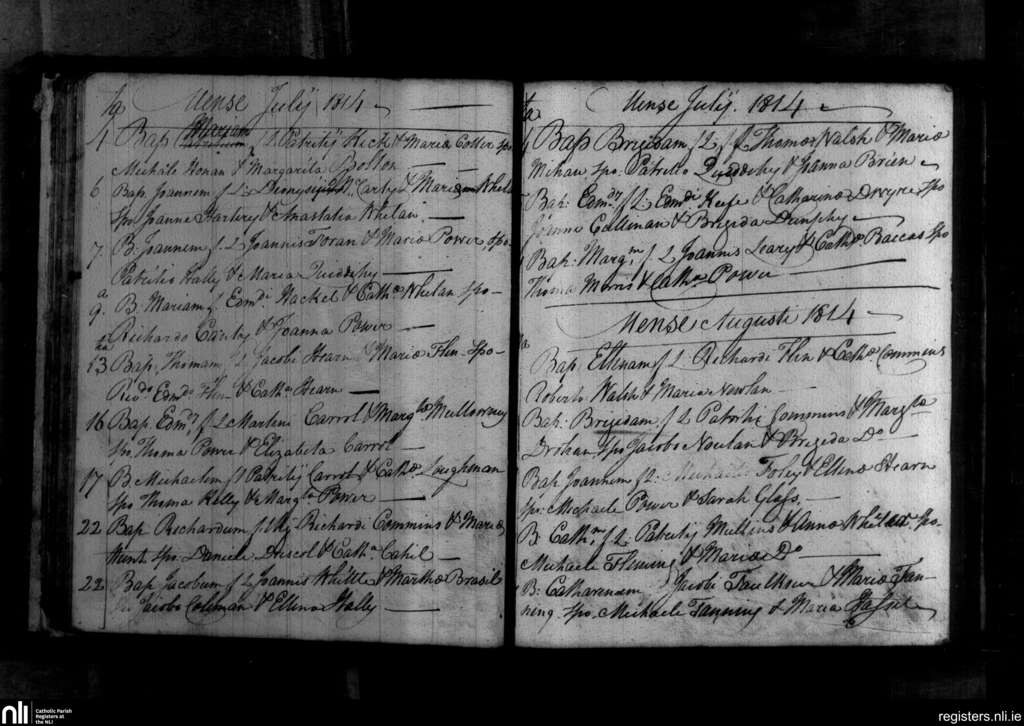 Mense Julÿ 1814
4 Bap Mariam f L Patritÿ Hick & Maria Coller Spo
Michale Honan & Margarita Bolton
6 Bap. Joannem f. L. Dionysÿ Carty & Mariæ Whelan
Spo Joanne Hartery & Anastatia Whelan
7. B. Joannem f. L Joannis Foran & Maria Power, Spo.
Patritio Hally & Maria Quiddihy
9. B. Mariam f. Edmdi Hacket & Catha Whelan Spo
Richardo & Joanna Power
13 Bap. Thomam f. L Jacobi Hearn & Mariæ Flin Spo
Ricdo Edmdo Flin & Catha Hearn
16 Bap. Edmd f. L Martini Carrol & Margta Mullowney
Spo. Thoma Power & Elizabeta Carrol
17 B. Michaelem f L Patritÿ Carrol & Catha Loughman
Spo Thoma Kelly & Margta Power
22 Bap Richardum Richardi Commins & Maria
Hunt. Spo. Daniele Driscol & Catha Cahil
22. Bap Jacobum f L Joannis White & Martha Brasil
Spo Jacobo Coleman & Ellina Hally
Mense Julÿ. 1814
Bap Brigidam f. L. Thoma Walsh & Maria
Mihan Spo. Patritio Quiddihy & Joanna Brien
Bap: Edmd f L Edmdi Keefe & Catharina Dwyre Spo
Joanne Colliman & Brigida Dunphy
Bap: Margm f. L Joannis Leary & Catha Baccas Spo
Thoma Morris & Catha Power
Mense Augusti 1814
Bap Ellenam f L Richardi Flin & Catha. Commins
Roberto Walsh & Maria Nowlan
Bap: Brigidam f. L Patritÿ Commins & Margta
Drohan Spo Jacobo Nowlan & Brigida Do
Bap Joannem f L. Michaelis Foley & Ellina Hearn
Spo: Michaele Power & Sarah Glass
B. Cathm f L Patritÿ Mullins & Anna Whelan Spo.
Michaele Fleming & Maria Do
B: Catharenam Jacobi Faulkner & Maria Fan-
ning. Spo. Michaele Fanning & Maria
nli
Catholic Parish
Registers at
the NLI
registers.nli.ie